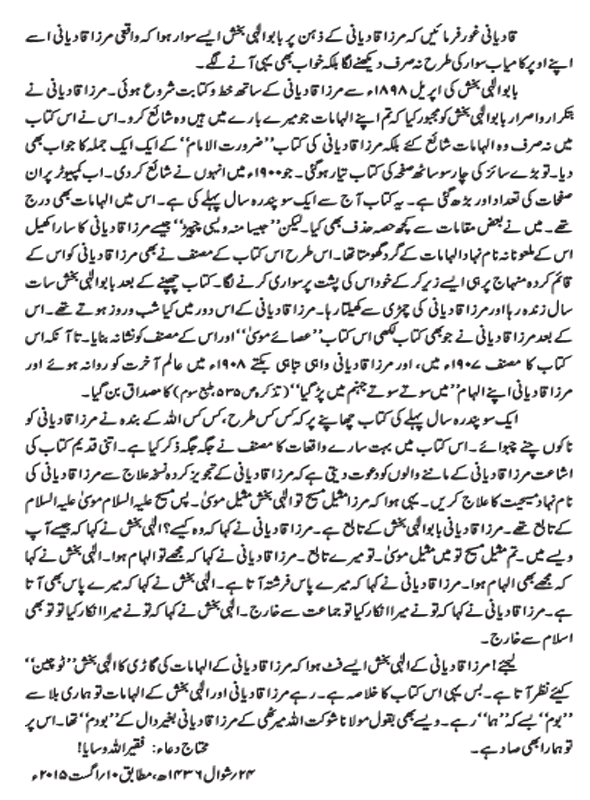 قادیانی غور فرمائیں کہ مرزا قادیانی کے ذہن پر بابو الٰہی بخش ایسے سوار ہوا کہ واقعی مرزا قادیانی اسے
اپنے اوپر کامیاب سوار کی طرح نہ صرف دیکھنے لگا بلکہ خواب بھی یہی آنے لگے۔
بابو الٰہی بخش کی اپریل ۱۸۹۸ء سے مرزا قادیانی کے ساتھ خط و کتابت شروع ہوئی۔ مرزا قادیانی نے
بتکرار واصرار بابو الٰہی بخش کو مجبور کیا کہ تم اپنے الہامات جو میرے بارے میں ہیں وہ شائع کرو۔ اس نے اس کتاب
میں نہ صرف وہ الہامات شائع کئے بلکہ مرزا قادیانی کی کتاب ’’ضرورت الامام‘‘ کے ایک ایک جملہ کا جواب بھی
دیا۔ تو بڑے سائز کی چار سو ساٹھ صفحہ کی کتاب تیار ہوگئی۔ جو ۱۹۰۰ء میں انہوں نے شائع کردی۔ اب کمپیوٹر پر ان
صفحات کی تعداد اور بڑھ گئی ہے۔ یہ کتاب آج سے ایک سو پندرہ سال پہلے کی ہے۔ اس میں الہامات بھی درج
تھے۔ میں نے بعض مقامات سے کچھ حصہ حذف بھی کیا۔ لیکن ’’جیسا منہ ویسی چپیڑ‘‘ جیسے مرزا قادیانی کا سارا کھیل
اس کے ملعونانہ نام نہاد الہامات کے گرد گھومتا تھا۔ اس طرح اس کتاب کے مصنف نے بھی مرزا قادیانی کو اس کے
قائم کردہ منہاج پر ہی ایسے زیر کر کے خود اس کی پشت پر سواری کرنے لگا۔ کتاب چھپنے کے بعد بابو الٰہی بخش سات
سال زندہ رہا اور مرزا قادیانی کی چمڑی سے کھیلتا رہا۔ مرزا قادیانی کے اس دور میں کیا شب و روز ہوتے تھے۔ اس
کے بعد مرزا قادیانی نے جو بھی کتاب لکھی اس کتاب ’’عصائے موسیٰ‘‘ اور اس کے مصنف کو نشانہ بنایا۔ تا آنکہ اس
کتاب کا مصنف ۱۹۰۷ء میں، اور مرزا قادیانی واہی تباہی بکتے ۱۹۰۸ء میں عالم آخرت کو روانہ ہوئے اور
مرزا قادیانی اپنے الہام ’’میں سوتے سوتے جہنم میں پڑ گیا‘‘ (تذکرہ ص۵۳۵، طبع سوم) کا مصداق بن گیا۔
ایک سو پندرہ سال پہلے کی کتاب چھاپنے پر کہ کس کس طرح، کس کس اللہ کے بندہ نے مرزا قادیانی کو
ناکوں چنے چبوائے۔ اس کتاب میں بہت سارے واقعات کا مصنف نے جگہ جگہ ذکر کیا ہے۔ اتنی قدیم کتاب کی
اشاعت مرزا قادیانی کے ماننے والوں کو دعوت دیتی ہے کہ مرزا قادیانی کے تجویز کردہ نسخہ علاج سے مرزا قادیانی کی
نام نہاد مسیحیت کا علاج کریں۔ یہی ہوا کہ مرزا مثیل مسیح تو الٰہی بخش مثیل موسیٰ۔ پس مسیح علیہ السلام موسیٰ علیہ السلام
کے تابع تھے۔ مرزا قادیانی بابو الٰہی بخش کے تابع ہے۔ مرزا قادیانی نے کہا کہ وہ کیسے؟ الٰہی بخش نے کہا کہ جیسے آپ
ویسے میں۔ تم مثیل مسیح تو میں مثیل موسیٰ۔ تو میرے تابع۔ مرزا قادیانی نے کہا کہ مجھے تو الہام ہوا۔ الٰہی بخش نے کہا
کہ مجھے بھی الہام ہوا۔ مرزا قادیانی نے کہا کہ میرے پاس فرشتہ آتا ہے۔ الٰہی بخش نے کہا کہ میرے پاس بھی آتا
ہے۔ مرزا قادیانی نے کہا کہ تو نے میرا انکار کیا تو جماعت سے خارج۔ الٰہی بخش نے کہا کہ تو نے میرا انکار کیا تو تو بھی
اسلام سے خارج۔
لیجئے! مرزا قادیانی کے الٰہی بخش ایسے فٹ ہوا کہ مرزا قادیانی کے الہامات کی گاڑی کا الٰہی بخش ’’ٹوچین‘‘
کیئے نظر آتا ہے۔ بس یہی اس کتاب کا خلاصہ ہے۔ رہے مرزا قادیانی اور الٰہی بخش کے الہامات تو ہماری بلا سے
’’بوم‘‘ بسے کہ ’’ہما‘‘ رہے۔ ویسے بھی بقول مولانا شوکت اللہ میرٹھی کے مرزا قادیانی بغیر دال کے ’’بودم‘‘ تھا۔ اس پر
تو ہمارا بھی صاد ہے۔ محتاج دعاء: فقیر اللہ وسایا!
۲۴؍شوال ۱۴۳۶ھ، مطابق ۱۰؍اگست ۲۰۱۵ء